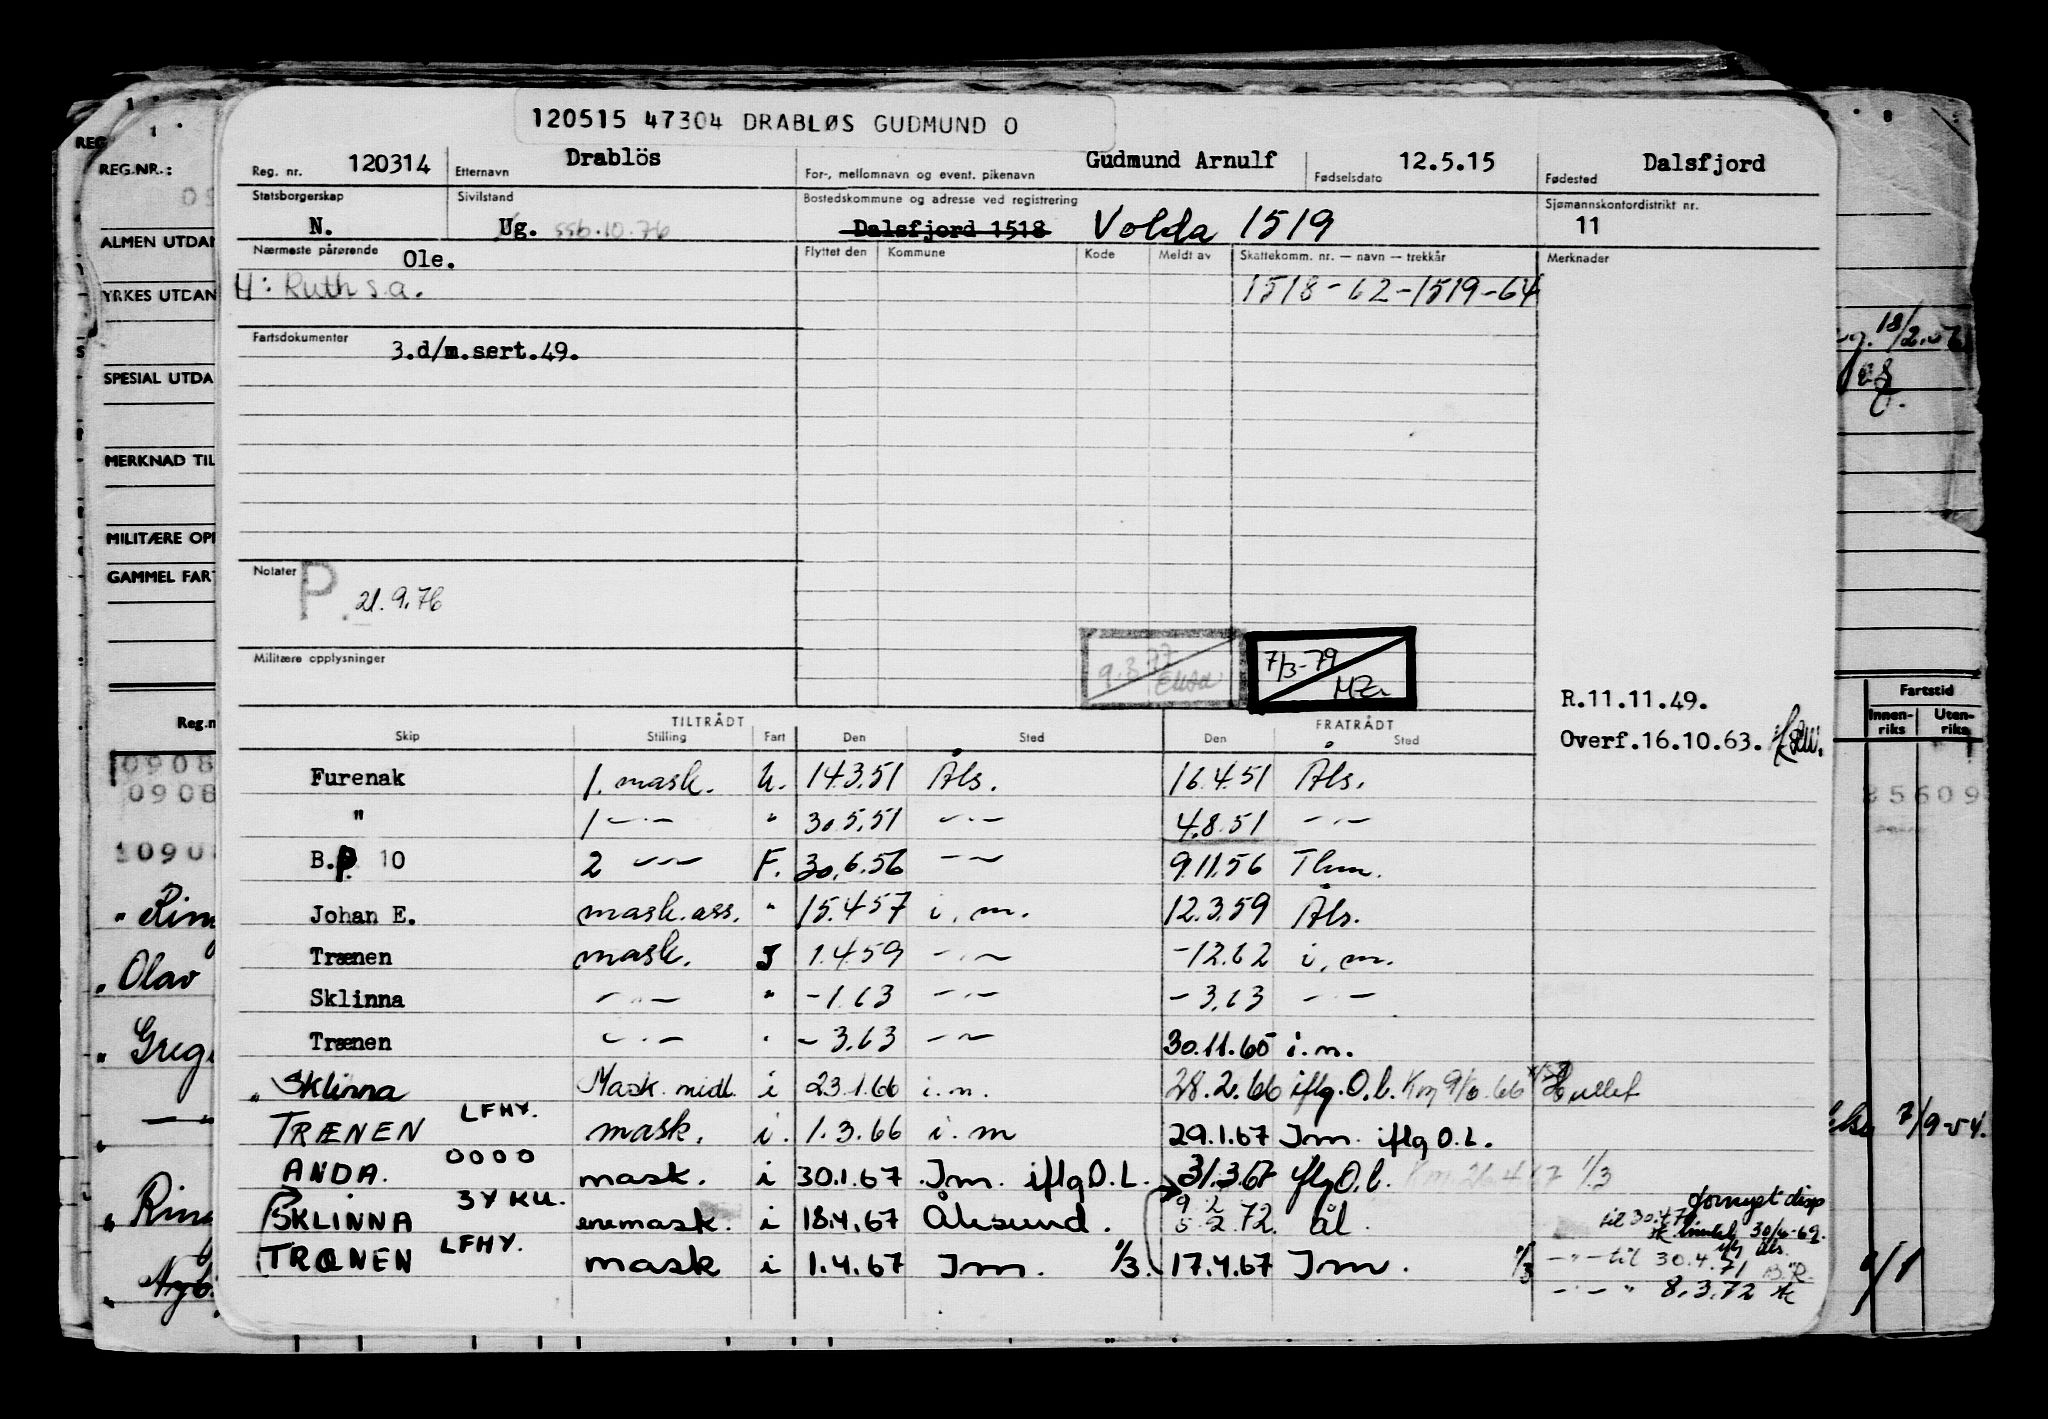 120515 47304 DRABLØS GUDMUND O
Reg. nr. 120314 Etternavn Drablös For-, mellomnavn og event. pikenavn Gudmund Arnulf Fødselsdato 12.5.15 Fødested Dalsfjord
Statsborgerskap N. Sivilstand Ug. Bostedskommune og adresse ved registrering Dalsfjord 1518 Volda 1519 Sjømannskontordistrikt nr. 11
Nærmeste pårørende Ole. Flyttet den Kommune Kode Meldt av Skattekomm. nr. — navn — trekkår Merknader
H: Ruth s.a. 1518-62-1519-64
Fartsdokumenter 3.d/m.sert.49.
Notater P. 21.9.76
Militære opplysninger
9.3.77 7/3-79
R.11.11.49.
Overf.16.10.63.
TILTRÅDT FRATRÅDT
Skip Stilling Fart Den Sted Den Sted
Furenak 1. mask. U. 14.3.51 Åls. 16.4.51 Åls.
" 1 -"- " 30.5.51 -"- 4.8.51 -"-
B.P. 10 2 -"- F. 30.6.56 -"- 9.11.56 Thm.
Johan E. mask.ass. " 15.4.57 i.m. 12.3.59 Åls.
Trænen mask. J 1.4.59 -"- -12.62 i.m.
Sklinna -"- " -1.63 -"- -3.63 -"-
Trænen -"- " -3.63 -"- 30.11.65 i.m.
" Sklinna Mask. midl. i 23.1.66 i.m. 28.2.66 iflg.O.L.
TRÆNEN LFHY. mask. i. 1.3.66 i.m 29.1.67 Im. iflg O.L.
ANDA. 0000 mask. i 30.1.67 Im. iflg O.L. 31.3.67 iflg O.L. 1/3
SKLINNA 3YKU. enemask. i 18.4.67 Ålesund. 9.2.72. ål.
TRÆNEN LFHY. mask i 1.4.67 Im. 1/3. 17.4.67 Im. 1/3
fornyet disp
til 30.4.70
30/4-69.
-"- til 30.4.71 B.R.
-"- " 8.3.72
REG.NR.:
ALMEN UTDAN
YRKES UTDAN
SPESIAL UTDA
MERKNAD TIL
MILITÆRE OPP
GAMMEL FART
Reg.n
0908
0908
10908
" Ring
" Olav
" Grege
" Ring
Fartstid
Innen-riks Uten-riks
25609
7/9-54.